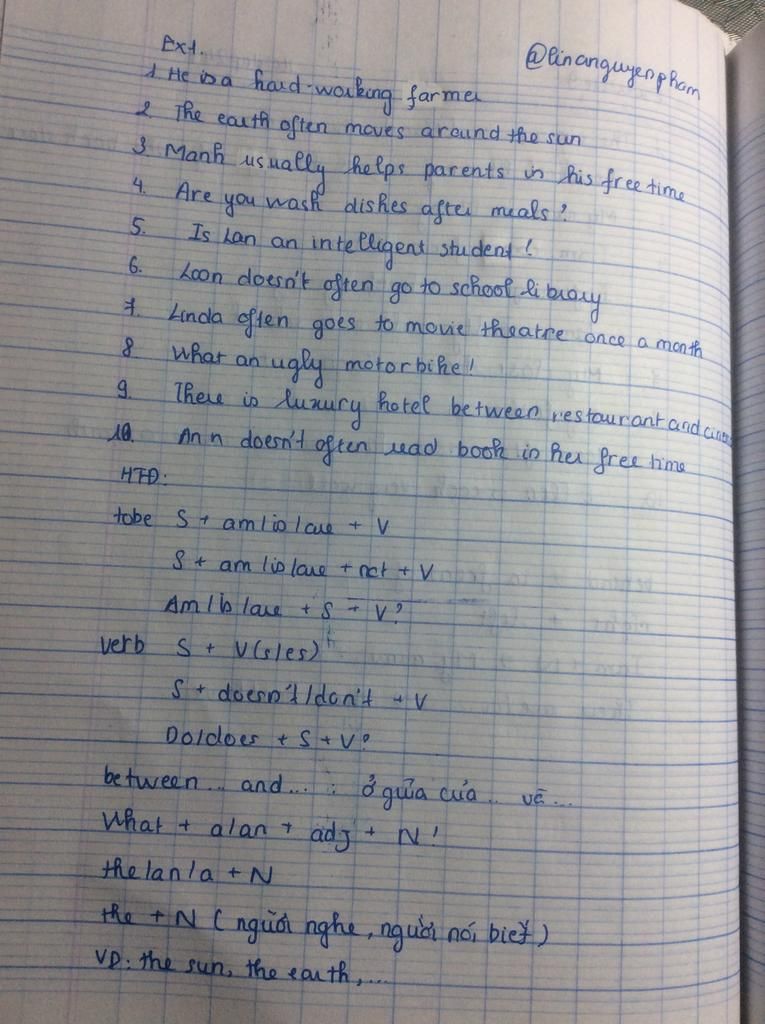 Ex1.
@linanguyenpham
1 He is a hard-working farmer
2 The earth often moves around the sun
3 Manh usually helps parents in his free time
4. Are you wash dishes after meals?
5. Is Lan an intelligent student!
6. Loon doesn't often go to school library
7. Linda often goes to movie theatre once a month
8 What an ugly motorbike!
9. There is luxury hotel between restaurant and
10. Ann doesn't often read book in her free time
HTĐ:
tobe S + am/is/are + V
S + am/is/are + not + V
Am/is/are + S + V?
verb S + V(s/es)
S + doesn't/don't + V
Do/does + S + V?
between... and... : ở giữa của... và...
What + a/an + adj + N!
the/an/a + N
the + N (người nghe, người nói biết)
VD: the sun, the earth,...